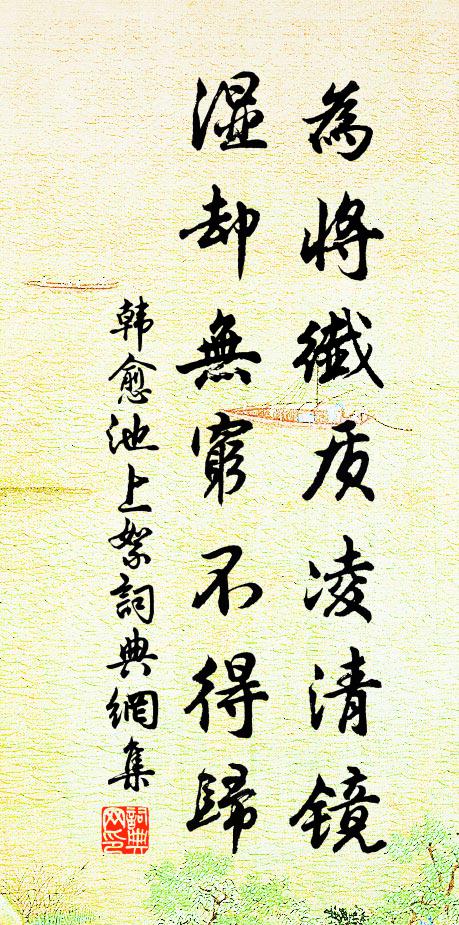 為將纖质凌清镜
濕却無窮不得歸
韩愈池上絮詞典網集
詞典网印